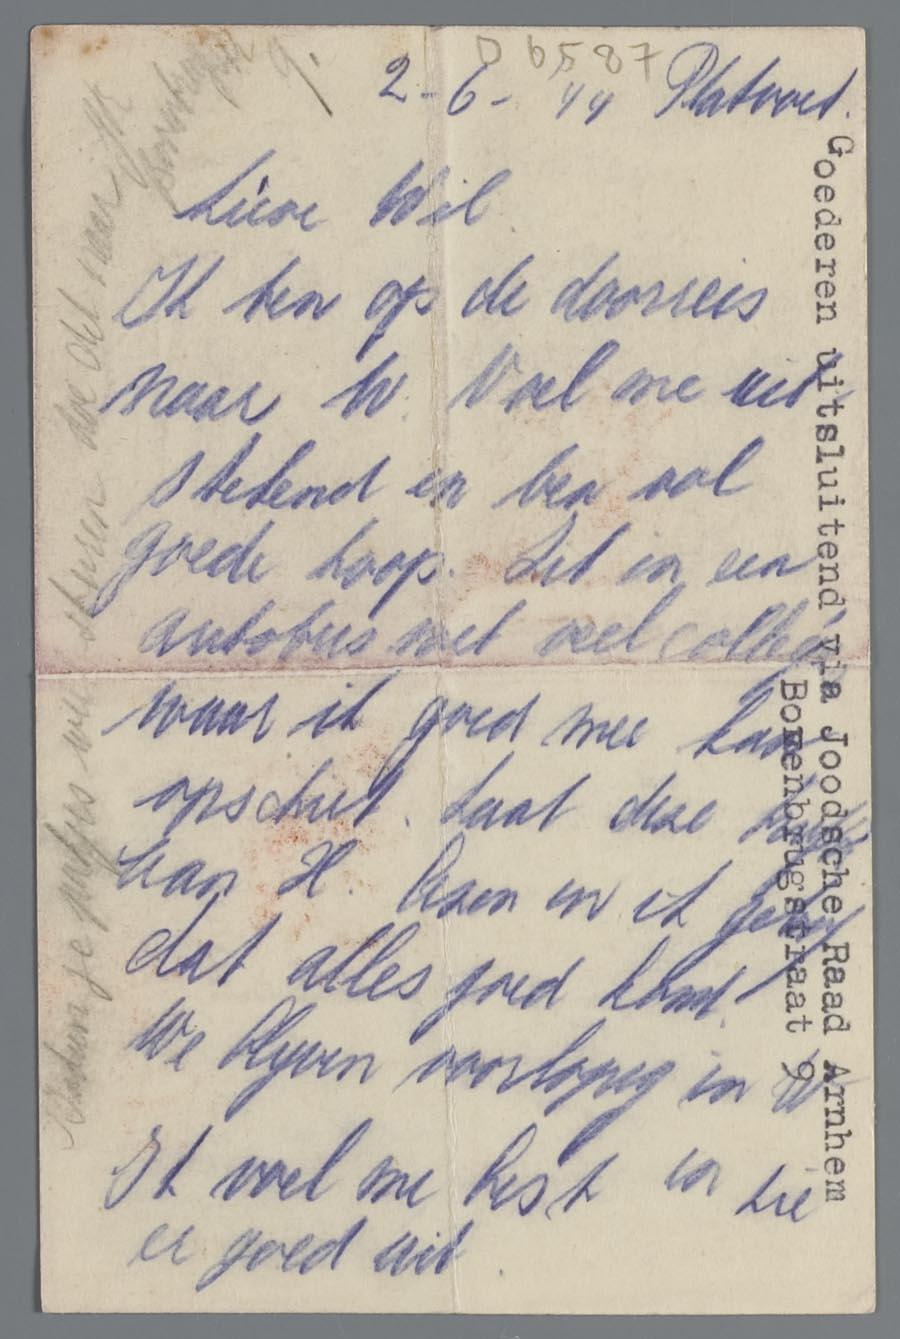 D 6587
9.
2-6-'44
Lieve Wil
Ik ben op de doorreis
naar W. Voel me uit
stekend en ben vol
goede hoop. Zit in een
autobus met veel
waar ik goed mee kan
opschiet. Laat deze
van H. lezen en ik
dat alles goed komt.
We blijven voorlopig in W
Ik voel me best en zie
er goed uit.
Goederen uitsluitend via Joodsche Raad Arnhem
Bovenbrugstraat 9